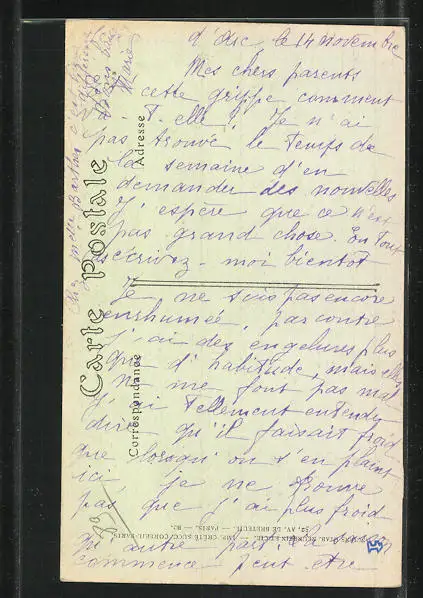 d'Arc, le 14 novembre
Mes chers parents
cette grippe comment
va-t-elle ? Je n'ai
pas trouvé le temps de
la semaine d'en
demander des nouvelles
J'espère que ce n'est
pas grand chose. En tout
écrivez-moi bientôt
Je ne suis pas encore
enrhumée, par contre
j'ai des engelures plus
que d'habitude, mais elles
ne me font pas mal
J'ai tellement entendu
dire qu'il faisait froid
que lorsqu'on s'en plaint
ici, je ne trouve
pas que j'ai plus froid
qu'autre part. La saison
commence peut être
Marie
Carte Postale
Correspondance
Adresse
52, AV. DE BRETEUIL - PARIS
IMP. CRÉTÉ SUCC. CORBEIL-PARIS